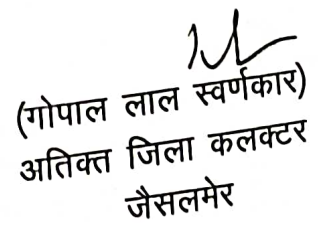 (गोपाल लाल स्वर्णकार)
अतिक्त जिला कलक्टर
जैसलमेर